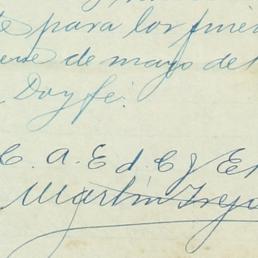 para los fine
de mayo de
Doy fe.
C. A. E d. C y E
Martín Trejo